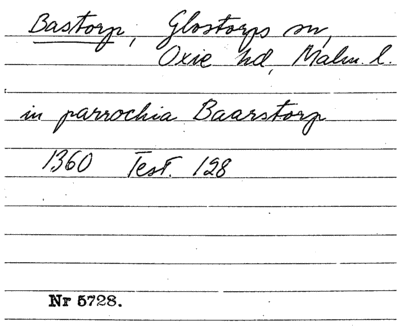 Bastorp, Glostorps sn,
Oxie hd, Malm. l.
in parrochia Baarstorp
1360 Test. 128
Nr 5728.